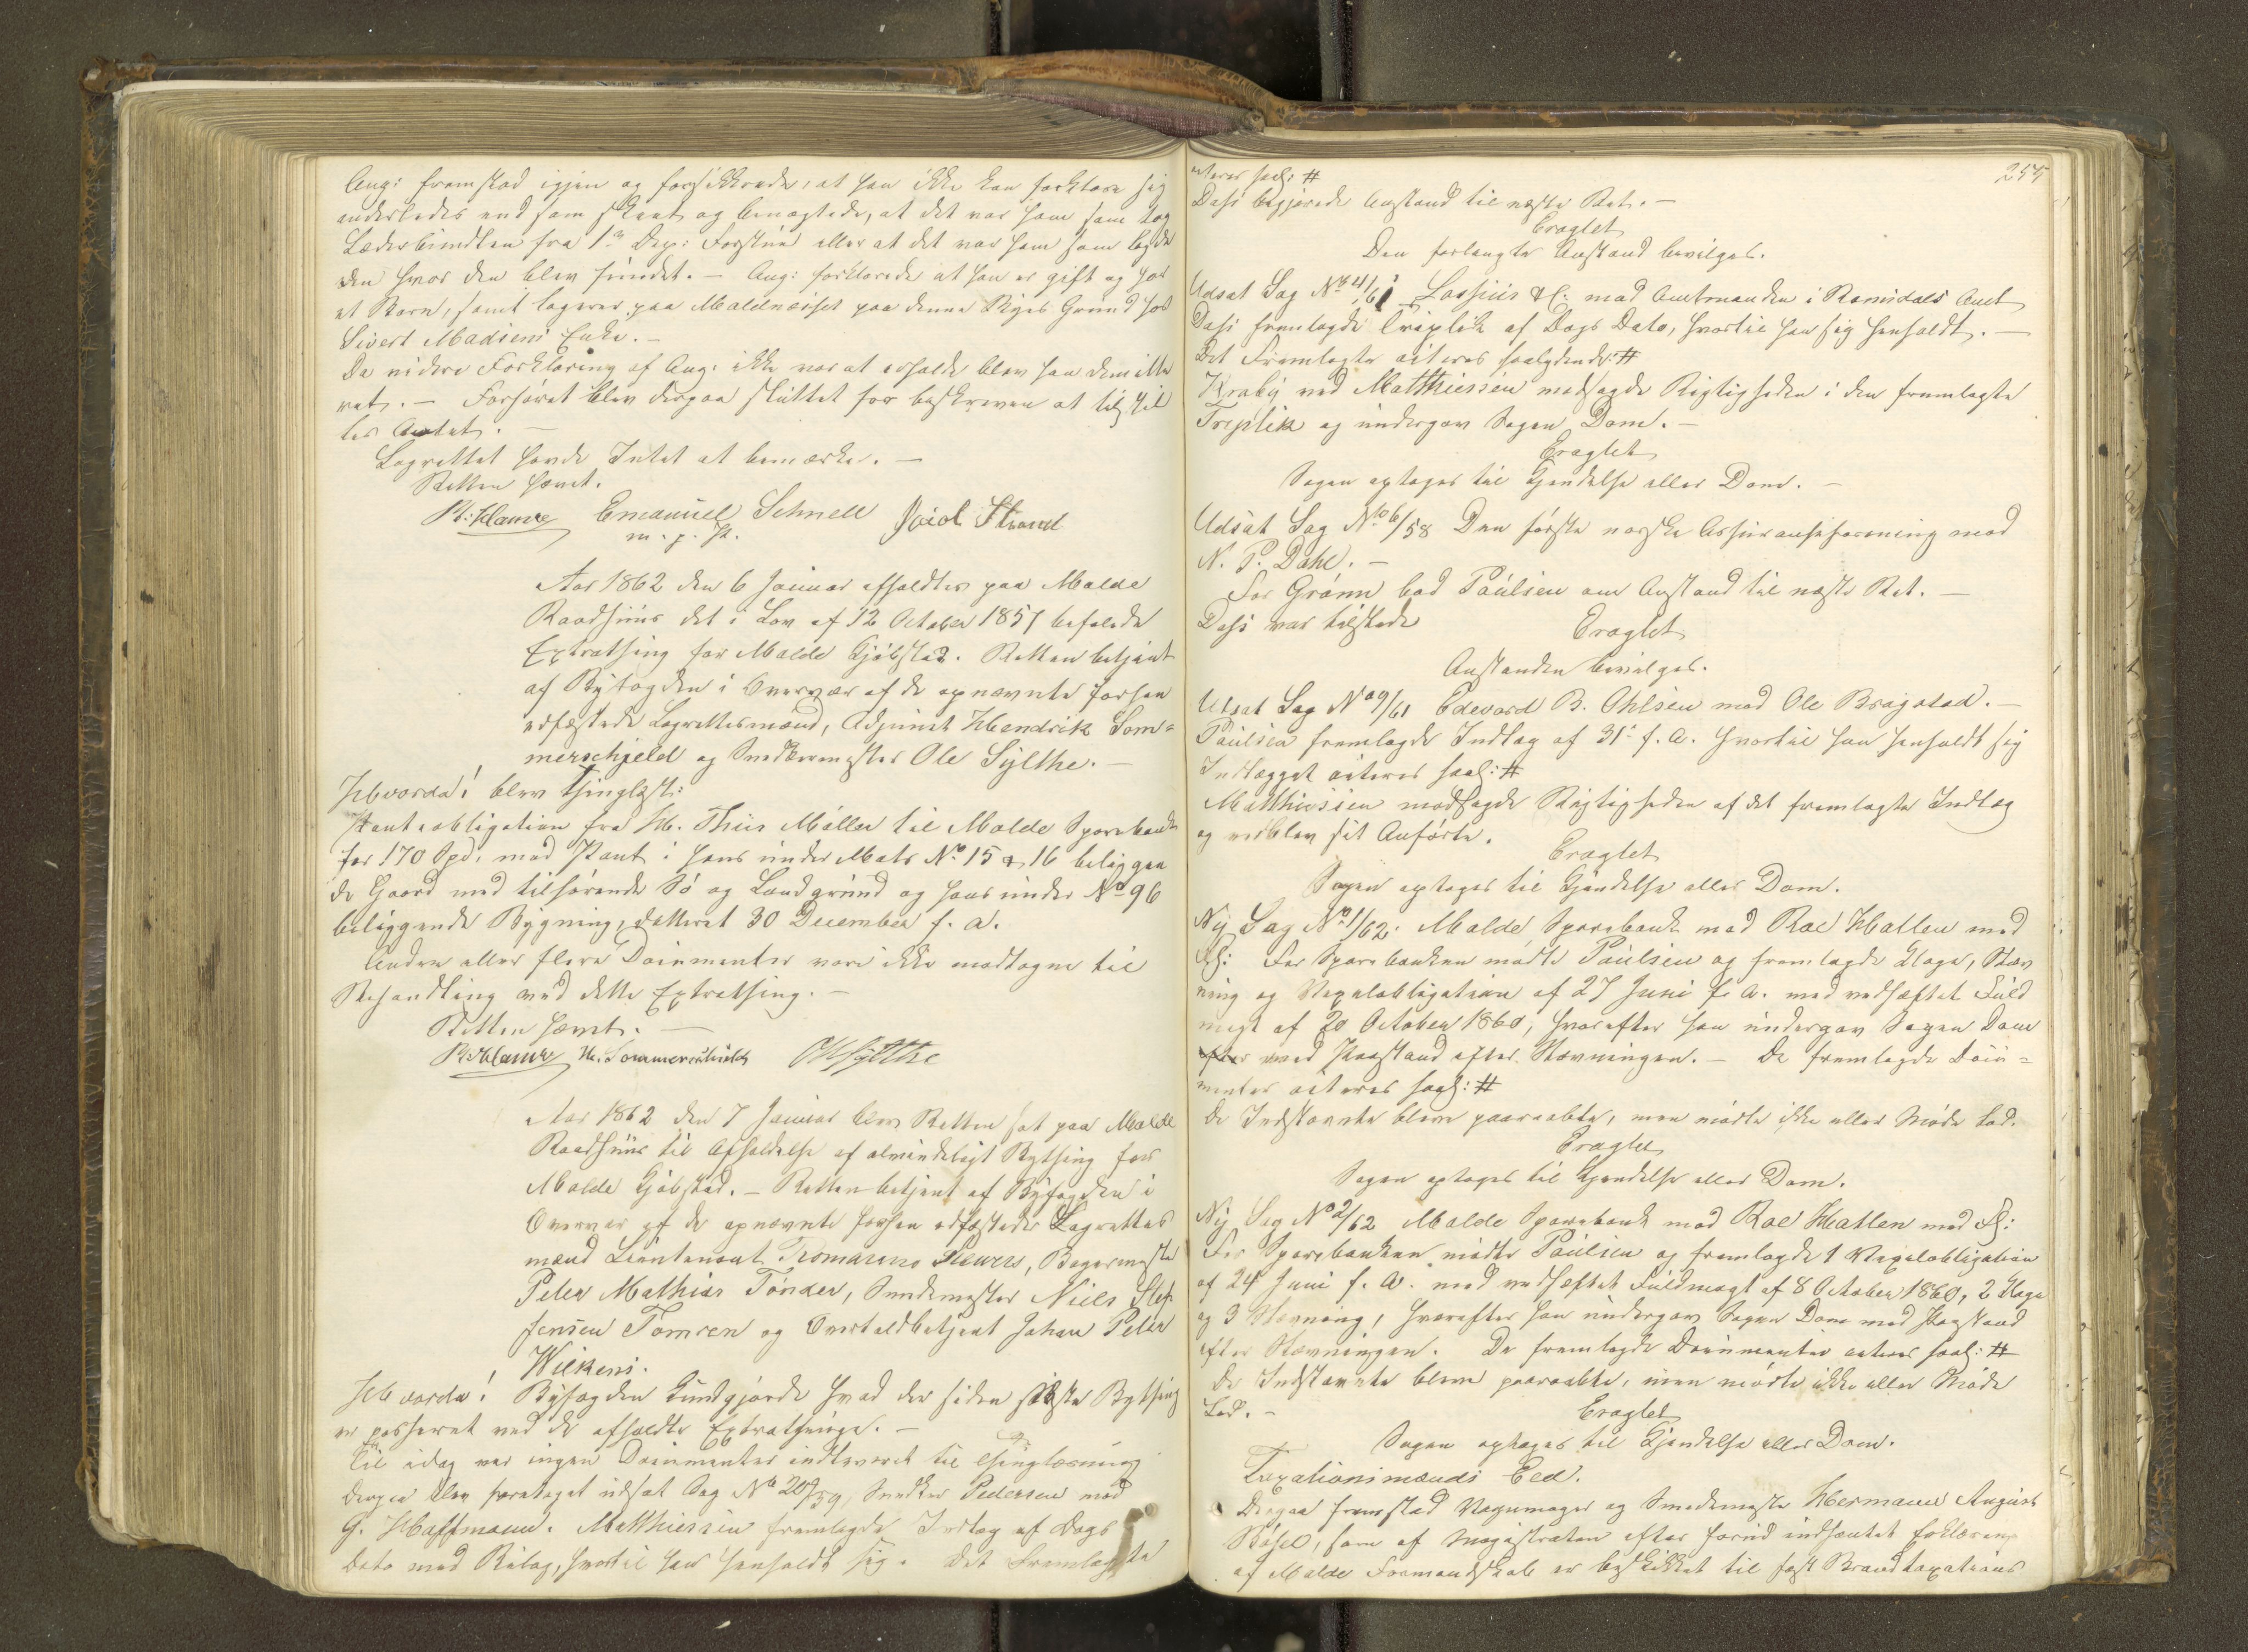 Ang: fremstod igjen og forsikkrede, at han ikke kan forklare sig
anderledes end som skeet og benægtede, at det var ham som tog
Læderbundten fra 1ste Dep: Forstue eller at det var ham som lagde
den hvor den blev fundet. – Ang: forklarede at han er gift og har
et Barn, samt logerer paa Moldenæsset paa denne Byes Grund hos
Sivert Madsens Enke. –
Da videre Forklaring af Ang: ikke var at erholde blev han dimitte
ret. – Forhøret blev derpaa sluttet for beskreven at tilstil
les Amtet. –
Lagrettet havde Intet at bemærke. –
Retten hævet.
Emanuel Schnell
m. p. P.
Aar 1862 den 6 Januar afholdtes paa Molde
Raadhuus det i Lov af 12 October 1857 befalede
Extrathing for Molde Kjøbsted. Retten betjent
af Byfogden i Overvær af de opnævnte forhen
edfæstede Lagrettesmænd, Adjunct Hendrik Som=
merschjeld og Snedkermester Ole Sylthe. –
Hvorda! blev thinglæst:
Panteobligation fra H. Thiis Møller til Molde Sparebank
for 170 Spd. med Pant i hans under Matr No 15 & 16 beliggen
de Gaard med tilhørende Sø og Landgrund og hans under No 96
beliggende Bygning, dateret 30 December f. A.
Andre eller flere Documenter vare ikke modtagne til
Behandling ved dette Extrathing. –
Retten hævet. –
H. Sommerschield OHSylthe
Aar 1862 den 7 Januar blev Retten sat paa Molde
Raadhuus til Afholdelse af almindeligt Bything for
Molde Kjøbsted. – Retten betjent af Byfogden i
Overvær af de opnævnte forhen edfæstede Lagrettes
mænd Lieutenant, Bagermester
Peter Mathias Tønder, Smedemester Niels Stef
fensen Tomren og Overtoldbetjent Johan Peter
Wilkens.
Hvorda! Byfogden kundgjorde hvad der siden sidste Bything
er passeret ved de afholdte Extrathinge. –
Til idag var ingen Documenter indleveret til Thinglæsning
derpaa blev foretaget udsat Sag No 20/59, Snedker Pedersen mod
G. Hoffmann. Matthiessen fremlagde Indlæg af Dags
Dato med Bilag, hvortil han henholdt sig. Det Fremlagte
255
acteres saal: #
Dass begjærede Anstand til næste Ret. –
Eragtet
Den forlangte Anstand bevilges.
Udsat Sag No 4/61 Lossius &C: mod Amtmanden i Romsdals Amt
Dass fremlagde Triplik af Dags Dato, hvortil han sig henholdt. –
Det Fremlagte acteres saalydende: #
Kraby ved Matthiessen modsagde Rigtigheden i den fremlagte
Triplik og undergav Sagen Dom. –
Eragtet
Sagen optages til Kjendelse eller Dom. –
Udsat Sag No 6/58 Den første norske Assuranseforening mod
N. P. Dahl. –
For Grønn bad Paulsen om Anstand til næste Ret. –
Dass var tilstede
Eragtet
Anstanden bevilges.
Udsat Sag No 9/61 Edevard B. Ohlsen mod Ole Bragstad. –
Paulsen fremlagde Indlæg af 31' f. A. hvortil han henholdt sig
Indlægget acteres saal: #
Matthiessen modsagde Rigtigheden af det fremlagte Indlæg
og vedblev sit Anførte.
Eragtet
Sagen optages til Kjendelse eller Dom.
Ny Sag No 1/62. Molde Sparebank mod Roe Hatlen med
Fl: For Sparebanken mødte Paulsen og fremlagde Klage, Stæv
ning og Vexelobligation af 27 Juni f. A. med vedhæftet Fuld
magt af 20 October 1860, hvorefter han undergav Sagen Dom
med Paastand efter Stævningen. – De fremlagde Docu=
menter acteres saal: #
De Indstævnte bleve paaraabte, men mødte ikke eller Møde lod.
Eragtet
Sagen optages til Kjendelse eller Dom.
Ny Sag No 2/62 Molde Sparebank mod Roe Hatlen med Fl:
For Sparebanken mødte Paulsen og fremlagde 1 Vexelobligation
af 24 Juni f. A. med vedheftet Fuldmagt af 8 October 1860, 2 Klage
og 3 Stævning, hvorefter han undergav Sagen Dom med Paastand
efter Stævningen. De fremlagde Documenter acteres saal: #
De Indstævnte bleve paaraabte, men mødte ikke eller Møde
Lod. –
Eragtet
Sagen optages til Kjendelse eller Dom.
Taxationsmænds Eed.
Derpaa fremstod Vognmager og Smedemester Hermann August
som af Magistraten efter forud indhentet Erklæring
af Molde Formandskab er beskikket til fast Brandtaxations